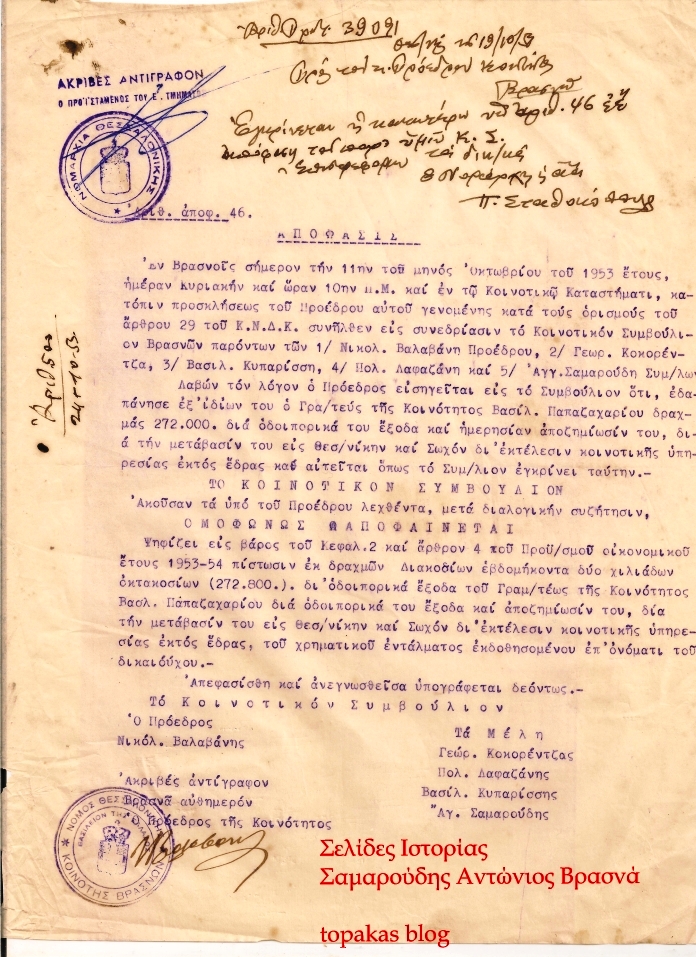 Ἀριθ. Πρωτ. 39091
Θεσ/νίκη τῇ 19/10/53
Πρός τόν κ. Πρόεδρον Κοινότητος
Βρασνῶν
ΑΚΡΙΒΕΣ ΑΝΤΙΓΡΑΦΟΝ
Ο ΠΡΟΪΣΤΑΜΕΝΟΣ ΤΟΥ Ε. ΤΜΗΜΑΤΟΣ
Ἐγκρίνεται ἡ ὑπ' ἀριθ. 46
Κ. Σ.
Ὁ Νομάρχης
Π. Σταθακόπουλος
ΝΟΜΑΡΧΙΑ ΘΕΣΣΑΛΟΝΙΚΗΣ
Ἀριθ. ἀποφ. 46.
ΑΠΟΦΑΣΙΣ
Ἐν Βρασνοῖς σήμερον τήν 11ην τοῦ μηνός Ὀκτωβρίου τοῦ 1953 ἔτους,
ἡμέραν Κυριακήν καί ὥραν 10ην Π.Μ. καί ἐν τῷ Κοινοτικῷ Καταστήματι, κα-
τόπιν προσκλήσεως τοῦ Προέδρου αὐτοῦ γενομένης κατά τούς ὁρισμούς τοῦ
ἄρθρου 29 τοῦ Κ.Ν.Δ.Κ. συνῆλθεν εἰς συνεδρίασιν τό Κοινοτικόν Συμβούλι-
ον Βρασνῶν παρόντων τῶν 1/ Νικολ. Βαλαβάνη Προέδρου, 2/ Γεωρ. Κοκορέν-
τζα, 3/ Βασιλ. Κυπαρίσση, 4/ Πολ. Λαφαζάνη καί 5/ Ἀγγ.Σαμαρούδη Συμ/λων
Λαβών τόν λόγον ὁ Πρόεδρος εἰσηγεῖται εἰς τό Συμβούλιον ὅτι, ἐδα-
πάνησε ἐξ'ἰδίων του ὁ Γρα/τεύς τῆς Κοινότητος Βασίλ. Παπαζαχαρίου δραχ-
μάς 272.000. διά ὁδοιπορικά του ἔξοδα καί ἡμερησίαν ἀποζημίωσίν του, δι-
ά τήν μετάβασίν του εἰς Θεσ/νίκην καί Σωχόν δι'ἐκτέλεσιν κοινοτικῆς ὑπη-
ρεσίας ἐκτός ἕδρας καί αἰτεῖται ὅπως τό Συμ/λιον ἐγκρίνει ταύτην.-
ΤΟ ΚΟΙΝΟΤΙΚΟΝ ΣΥΜΒΟΥΛΙΟΝ
Ἀκοῦσαν τά ὑπό τοῦ Προέδρου λεχθέντα, μετά διαλογικήν συζήτησιν,
ΟΜΟΦΩΝΩΣ ΩΑΠΟΦΑΙΝΕΤΑΙ
Ψηφίζει εἰς βάρος τοῦ Κεφαλ.2 καί ἄρθρον 4 ποῦ Προϋ/σμοῦ οἰκονομικοῦ
ἔτους 1953-54 πίστωσιν ἐκ δραχμῶν Διακοσίων ἑβδομήκοντα δύο χιλιάδων
ὀκτακοσίων (272.800.). δι'ὁδοιπορικά ἔξοδα τοῦ Γραμ/τέως τῆς Κοινότητος
Βασλ. Παπαζαχαρίου διά ὁδοιπορικά του ἔξοδα καί ἀποζημίωσίν του, δία
τήν μετάβασίν του εἰς Θεσ/νίκην καί Σωχόν δι'ἐκτέλεσιν κοινοτικῆς ὑπηρε-
σίας ἐκτός ἕδρας, τοῦ χρηματικοῦ ἐντάλματος ἐκδοθησομένου ἐπ'ὀνόματι τοῦ
δικαιούχου.-
Ἀπεφασίσθη καί ἀνεγνωσθεῖσα ὑπογράφεται δεόντως.-
Τό Κοινοτικόν Συμβούλιον
Ὁ Πρόεδρος
Νικόλ. Βαλαβάνης
Τά Μέλη
Γεώρ. Κοκορέντζας
Πολ. Λαφαζάνης
Βασίλ. Κυπαρίσσης
Ἀγ. Σαμαρούδης
Ἀκριβές ἀντίγραφον
Βρασνᾶ αὐθημερόν
Ὁ Πρόεδρος τῆς Κοινότητος
ΝΟΜΟΣ ΘΕΣΣΑΛΟΝΙΚΗΣ
ΒΑΣΙΛΕΙΟΝ ΤΗΣ ΕΛΛΑΔΟΣ
ΚΟΙΝΟΤΗΣ ΒΡΑΣΝΩΝ
Ἀριθ 500
24-10-53
Σελίδες Ιστορίας
Σαμαρούδης Αντώνιος Βρασνά
topakas blog